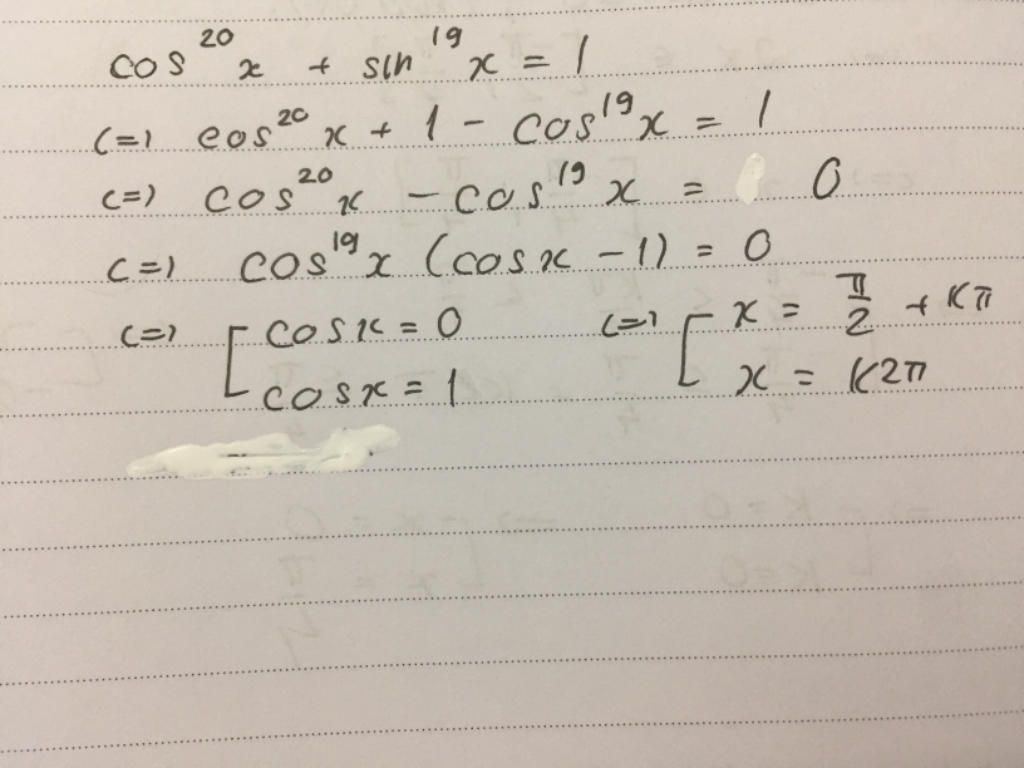 cos²⁰x + sin¹⁹x = 1
(=) cos²⁰x + 1 - cos¹⁹x = 1
(=) cos²⁰x - cos¹⁹x = 0
(=) cos¹⁹x (cosx - 1) = 0
(=) [ cosx = 0 (=) [ x = π/2 + kπ
cosx = 1 x = k2π